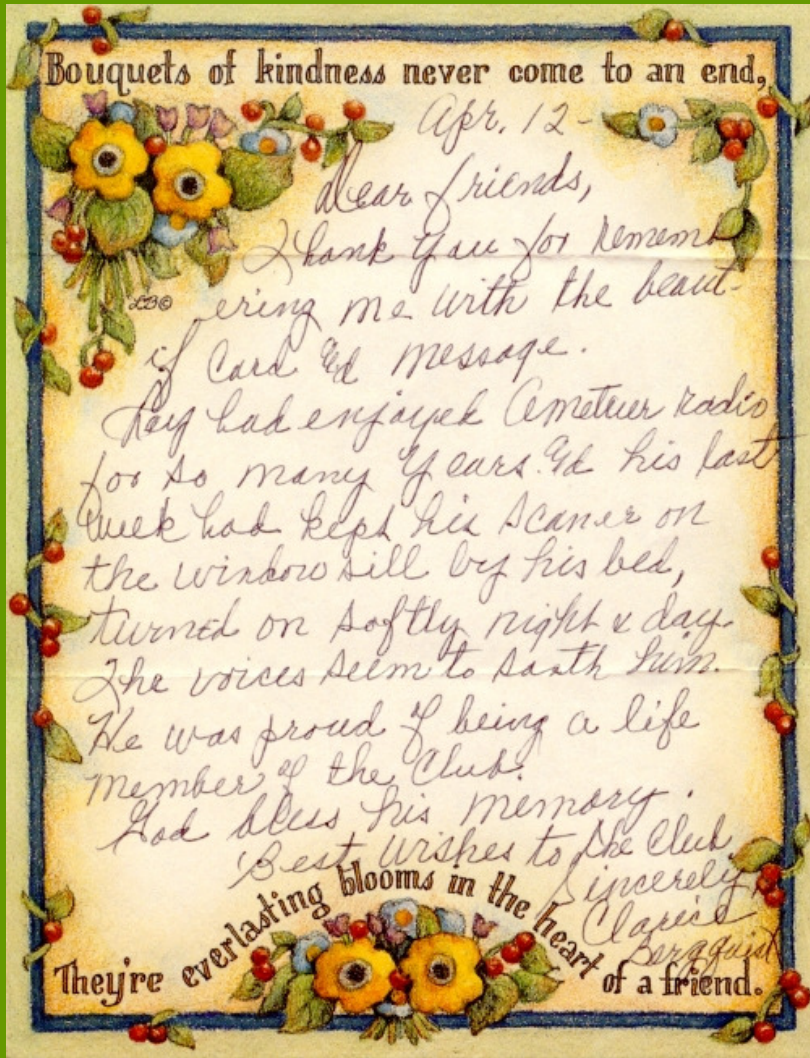 Bouquets of kindness never come to an end,
Apr. 12 -
Dear friends,
Thank you for rememb
ering me with the beaut-
if card &d message.
Ray had enjoyed Ametuer radio
for so many years. &d his last
week had kept his scaner on
the window sill by his bed,
turned on softly night & day.
The voices seem to sooth him.
He was proud of being a life
member of the Club.
God bless his memory.
Best wishes to the Club
Sincerely,
Clarice
Bergquist
They're everlasting blooms in the heart of a friend.
LB©